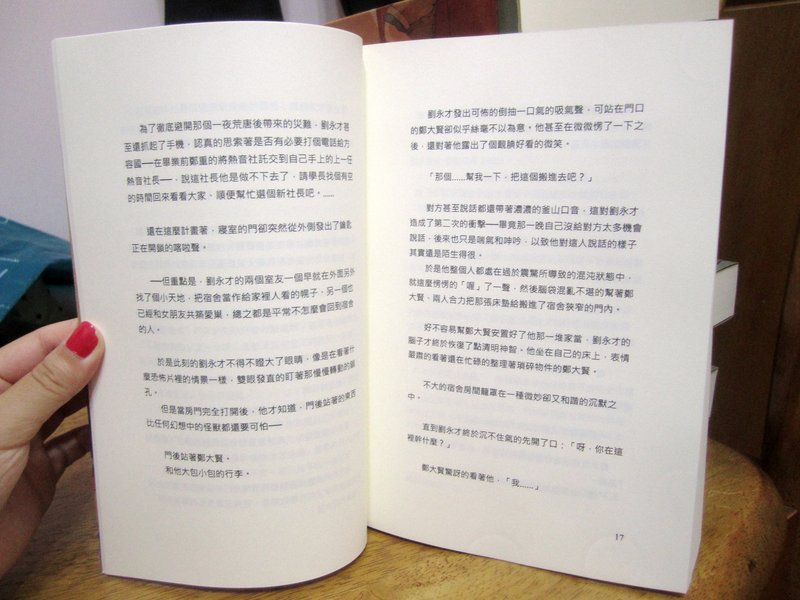 為了徹底避開那個一夜荒唐後帶來的災難，劉永才甚
至還抓起了手機，認真的思索著是否有必要打個電話給方
容國──在畢業前鄭重的將熱音社託交到自己手上的上一任
熱音社長──，說這社長他是做不下去了，請學長找個有空
的時間回來看看大家、順便幫忙選個新社長吧。......
還在這麼計畫著，寢室的門卻突然從外側發出了鑰匙
正在開鎖的喀啦聲。
──但重點是，劉永才的兩個室友一個早就在外面另外
找了個小天地，把宿舍當作給家裡人看的幌子，另一個也
已經和女朋友共築愛巢，總之都是平常不怎麼會回到宿舍
的人。
於是此刻的劉永才不得不瞪大了眼睛，像是在看著什
麼恐怖片裡的情景一樣，雙眼發直的盯著那慢慢轉動的鎖
孔。
但是當房門完全打開後，他才知道，門後站著的東西
比任何幻想中的怪獸都還要可怕──
門後站著鄭大賢。
和他大包小包的行李。
劉永才發出可怖的倒抽一口氣的吸氣聲，可站在門口
的鄭大賢卻似乎絲毫不以為意。他甚至在微微愣了一下之
後，還對著他露出了個靦腆好看的微笑。
「那個......幫我一下，把這個搬進去吧？」
對方甚至說話都還帶著濃濃的釜山口音，這對劉永才
造成了第二次的衝擊──畢竟那一晚自己沒給對方太多機會
說話，後來也只是喘氣和呻吟，以致他對這人說話的樣子
其實還是陌生得很。
於是他整個人都處在過於震驚所導致的混沌狀態中，
就這麼愣愣的「喔」了一聲，然後腦袋混亂不堪的幫著鄭
大賢、兩人合力把那張床墊給搬進了宿舍狹窄的門內。
好不容易幫鄭大賢安置好了他那一堆家當，劉永才的
腦子才終於恢復了點清明神智。他坐在自己的床上，表情
嚴肅的看著還在忙碌的整理著瑣碎物件的鄭大賢。
不大的宿舍房間籠罩在一種微妙卻又和諧的沉默之
中。
直到劉永才終於沉不住氣的先開了口：「呀，你在這
裡幹什麼？」
鄭大賢驚訝的看著他，「我......」
17